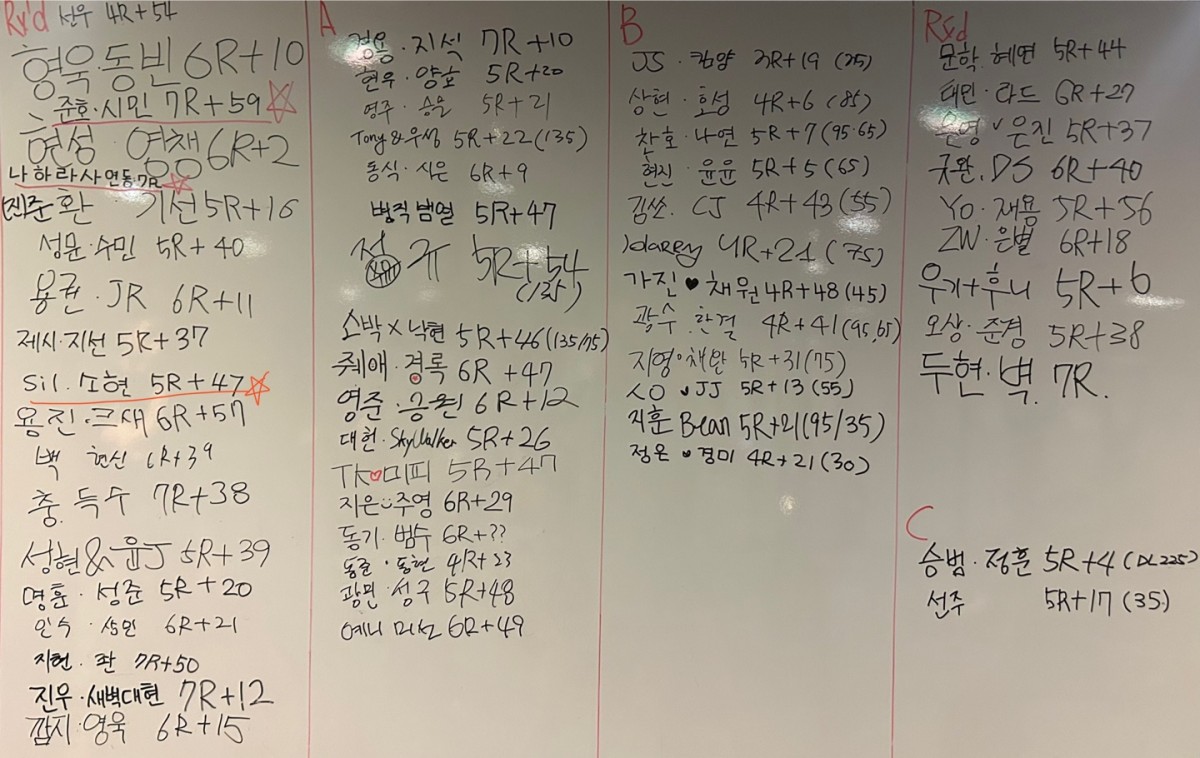 Rx'd 선우 4R+54
형욱·동빈 6R+10
준호·시민 7R+59
현성 영채 6R+2
나 하 라 사 연동 7R
환 기선 5R+16
성문·수민 5R+40
용권·JR 6R+11
제시·지선 5R+37
Sil·소현 5R+47
용진·크새 6R+57
백 현신 6R+39
충·득수 7R+38
성현&윤J 5R+39
명훈·성준 5R+20
인수·상민 6R+21
지헌·좐 7R+50
진우·새벽대현 7R+12
깜지·영욱 6R+15
A
경용·지석 7R+10
현우·양호 5R+20
영주·승율 5R+21
Tony&우성 5R+22(135)
동식·시은 6R+9
범직 범열 5R+47
규 5R+54
(135)
소박×낙현 5R+46(135/95)
쥐애·경록 6R+47
영준·승원 6R+12
대헌·SkyWalker 5R+26
TK♥미피 5R+47
지은·주영 6R+29
동기·범수 6R+??
동현 4R+23
광민·성구 5R+48
예니 미선 6R+49
B
JS·캉양 3R+19 (25)
상현·호성 4R+6 (85)
찬호·나연 5R+7 (95·65)
현진·윤윤 5R+5 (65)
김쏘·CJ 4R+43 (55)
4R+21 (75)
가진♥채원 4R+48 (45)
광수·한결 4R+41 (95,65)
지영 5R+31 (75)
JJ 5R+13 (55)
지훈 Bean 5R+21 (95/35)
정은·경미 4R+21 (30)
Rxd
문학·혜연 5R+44
태민·라드 6R+27
은영 은진 5R+37
굿완·DS 6R+40
YO·재용 5R+56
ZW·은별 6R+18
우기+후니 5R+6
오상·준경 5R+38
두현·벽 7R.
C
승범·정훈 5R+4 (DL225)
선주 5R+17 (35)